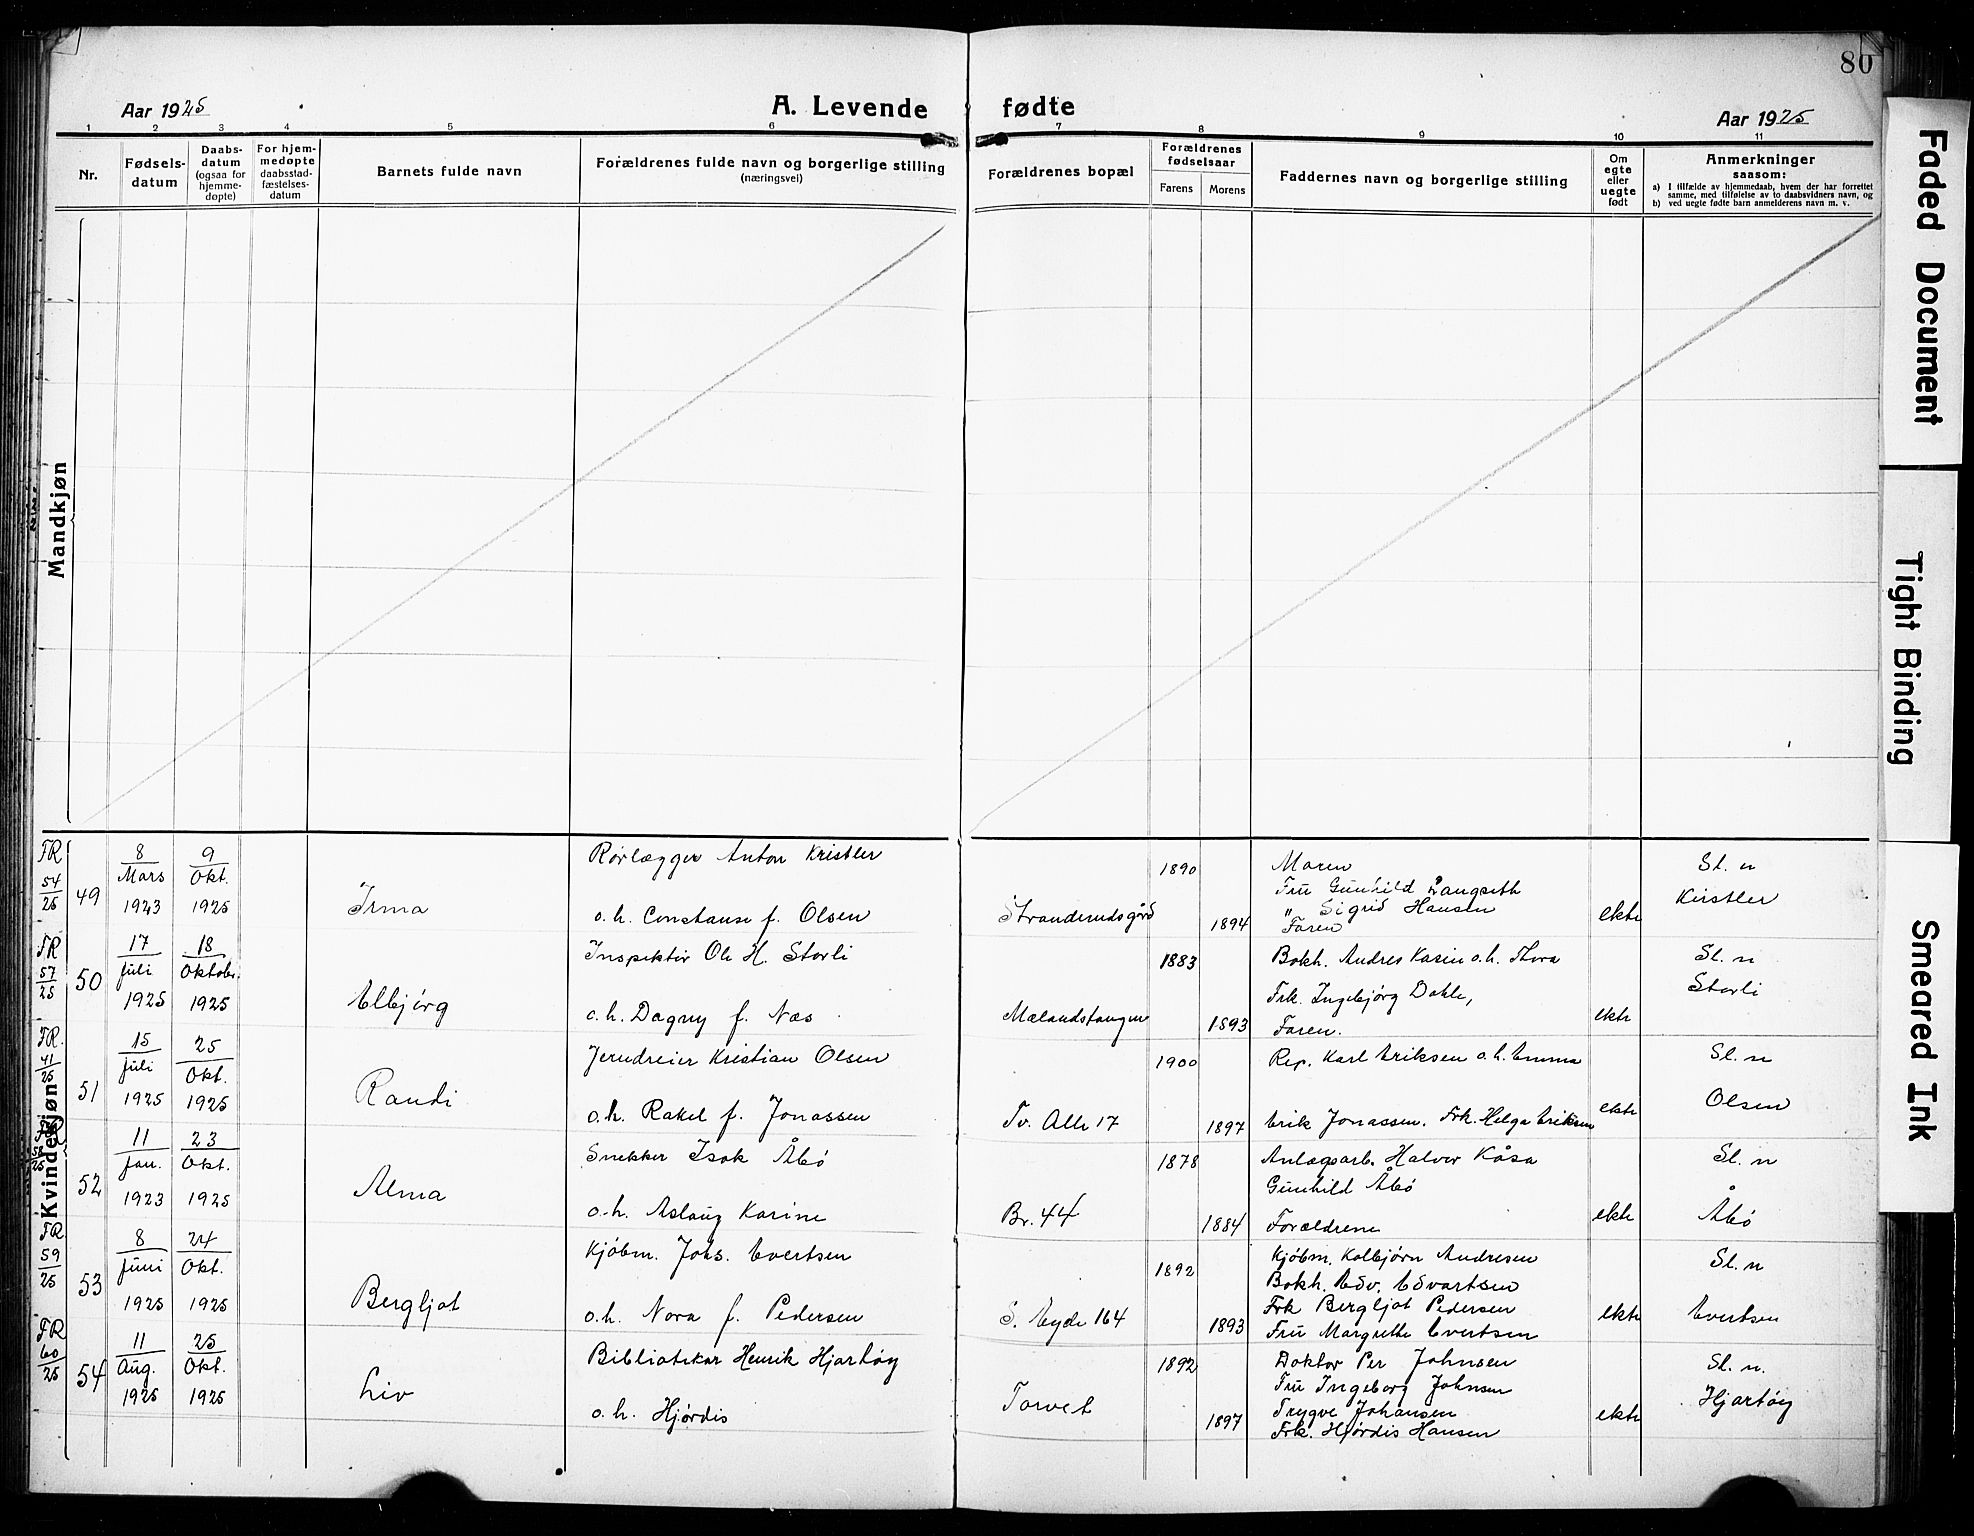 80
Aar 1925
A. Levende fødte
Aar 1925
1 2 3 4 5 6 7 8 9 10 11
Nr.
Fødsels-
datum
Daabs-
datum
(ogsaa for
hjemme-
døpte)
For hjem-
medøpte
daabsstad-
fæstelses-
datum
Barnets fulde navn
Forældrenes fulde navn og borgerlige stilling
(næringsvei)
Forældrenes bopæl
Forældrenes
fødselsaar
Farens Morens
Faddernes navn og borgerlige stilling
Om
egte
eller
uegte
født
Anmerkninger
saasom:
a) I tilfælde av hjemmedaab, hvem der har forrettet
samme, med tilføielse av to daabsvidners navn, og
b) ved uegte fødte barn anmelderens navn m. v.
Mandkjøn
Kvindekjøn
FR 54/25
49
8 Mars 1923
9 Okt. 1925
Irma
Rørlægger Anton Kristler
o.h. Constanse f. Olsen
Stranderudsgård
1890
1894
Maren
Fru Gunhild Langseth
" Sigrid Hansen
Faren
ekte
Sl. n
Kirstler
FR 57/25
50
17 Juli 1925
18 Oktobr. 1925
Elbjørg
Inspektør Ole H. Storli
o.h. Dagny f. Næs
Mælandstangen
1883
1893
Bokh. Andres Kasin o.h. Thora
Frk. Ingebjørg Dahle,
Faren.
ekte
Sl. n
Storli
FR. 41/25
51
15 Juli 1925
25 Okt. 1925
Randi
Jerndreier Kristian Olsen
o.h. Rakel f. Jonassen
Tv. Alle 17
1900
1897
Rep. Karl Eriksen o.h. Emma
Erik Jonassen. Frk. Helga Eriksen
ekte
Sl. n
Olsen
FR 58/25
52
11 Jan. 1923
23 Okt. 1925
Alma
Snekker Isak Åbø
o.h. Aslaug Karine
Br. 44
1878
1884
Anlægsarb. Halvor Kåsa
Gunhild Åbø
Forældrene
ekte
Sl. n
Åbø
FR 59/25
53
8 Juni 1925
24 Okt. 1925
Bergljot
Kjøbm. Johs. Evertsen
o.h. Nora f. Pedersen
S. Eyde 164
1892
1893
Kjøbm. Kolbjørn Andresen
Bokh. Edv. Edvartsen
Frk Bergljot Pedersen
Fru Margrethe Evertsen
ekte
Sl. n
Evertsen
FR 60/25
54
11 Aug. 1925
25 Okt. 1925
Liv
Bibliotekar Henrik Hjartøy
o.h. Hjørdis
Torvet
1892
1897
Doktor Per Johnsen
Fru Ingeborg Johnsen
Trygve Johansen
Frk. Hjørdis Hansen
ekte
Sl. n.
Hjartøy
Faded Document
Tight Binding
Smeared Ink